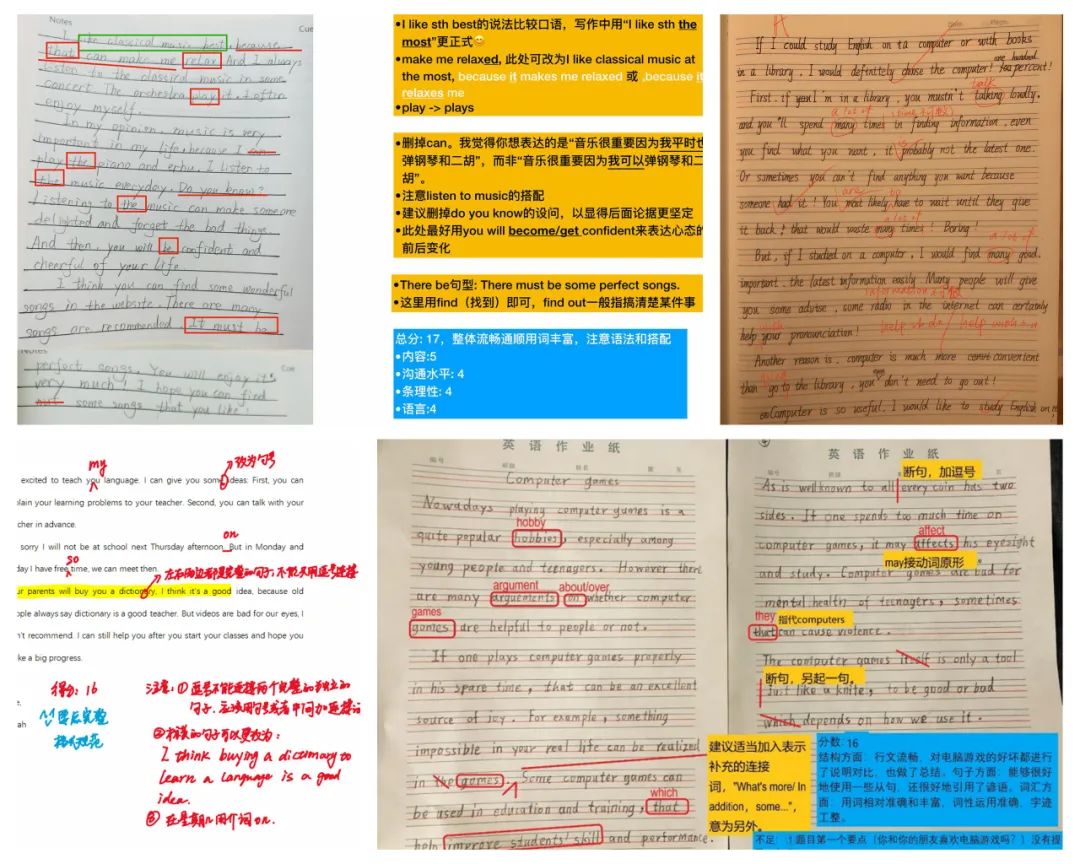 Notes
Cue
I like classical music best, because
that can make me relax. And I always
listen to the classical music in some
concert. The orchestra play it. I often
enjoy myself.
In my opinion, music is very
important in my life, because I can
play the piano and erhu. I listen to
the music everyday. Do you know?
Listening to the music can make someone
delighted and forget the bad things.
And then, you will be confident and
cheerful of your life.
I think you can find some wonderful
songs in the website. There are many
songs are recommended. It must be
Notes
Cue
perfect songs. You will enjoy it's
very much. I hope you can find
out some songs that you like.
•I like sth best的说法比较口语，写作中用“I like sth the
most”更正式😊
•make me relaxed, 此处可改为I like classical music at
the most, because it makes me relaxed 或 ,because it
relaxes me
•play -> plays
•删掉can。我觉得你想表达的是“音乐很重要因为我平时也
弹钢琴和二胡”，而非“音乐很重要因为我可以弹钢琴和二
胡”。
•注意listen to music的搭配
•建议删掉do you know的设问，以显得后面论据更坚定
•此处最好用you will become/get confident来表达心态的
前后变化
•There be句型: There must be some perfect songs.
•这里用find（找到）即可，find out一般指搞清楚某件事
总分: 17，整体流畅通顺用词丰富，注意语法和搭配
•内容:5
•沟通水平: 4
•条理性: 4
•语言:4
A
If I could study English on a computer or with books
in a library, I would definitely chose the computer! percent!
one hundred
First, if you I'm in a library, you mustn't talking loudly,
talk
and you'll spend many times in finding information, even
a lot of
you find what you want, it probably not the latest one.
Or sometimes you can't find anything you want because
someone had it! You most likely have to wait until they give
are
to
it back! that would waste many times! Boring!
a lot of
But, if I studied on a computer, I would find many good,
a lot of
important, the latest information easily. Many people will give
you some advise, some radio in the internet can certainly
help your pronunciation!
with
help sb do / help with
Another reason is, computer is much more convenient
than go to the library, you don't need to go out!
Computer is so useful. I would like to study English on
excited to teach you language. I can give you some ideas: First, you can
my
改为句号
plain your learning problems to your teacher. Second, you can talk with your
cher in advance.
sorry I will not be at school next Thursday afternoon. But in Monday and
on
day I have free time, we can meet then.
so
左右两边都是完整的句子，不能只用逗号连接
ur parents will buy you a dictionary, I think it's a good idea, because old
ple always say dictionary is a good teacher. But videos are bad for our eyes, I
n't recommend. I can still help you after you start your classes and hope you
ke a big progress.
得分: 16
格式规范
注意: ① 逗号不能连接两个完整的独立的
句子，应该用句号或者中间加连接词
② 的句子可以更改为:
I think buying a dictionary to
learn a language is a good
idea.
③ 在星期几用介词on.
英语作业纸
Computer games
Nowadays playing computer games is a
quite popular hobbies, especially among
hobby
young people and teenagers. However there
are many arguements on whether computer
argument
about/over
games are helpful to people or not.
games
If one plays computer games properly
in his spare time, that can be an excellent
source of joy. For example, something
impossible in your real life can be realized
in the games. Some computer games can
be used in education and training, that
which
help improve students' skill and performance.
建议适当加入表示
补充的连接
词，"What's more/ In
addition，some..."，
意为另外。
英语作业纸
断句，加逗号
As is wellknown to all every coin has two
sides. If one spends too much time on
computer games, it may affects his eyesight
affect
may接动词原形
and study. Computer games are bad for
mental health of teenagers, sometimes
they
指代computers
that can cause violence.
The computer games itself is only a tool
断句，另起一句。
Just like a knife, to be good or bad
which depends on how we use it.
分数: 16
结构方面：行文流畅，对电脑游戏的好坏都进行
了说明对比，也做了总结。句子方面：能够很好
地使用一些从句，还很好地引用了谚语。词汇方
面：用词相对准确和丰富，词性运用准确，字迹
工整。
不足：1.题目第一个要点（你和你的朋友喜欢电脑游戏吗？）没有提